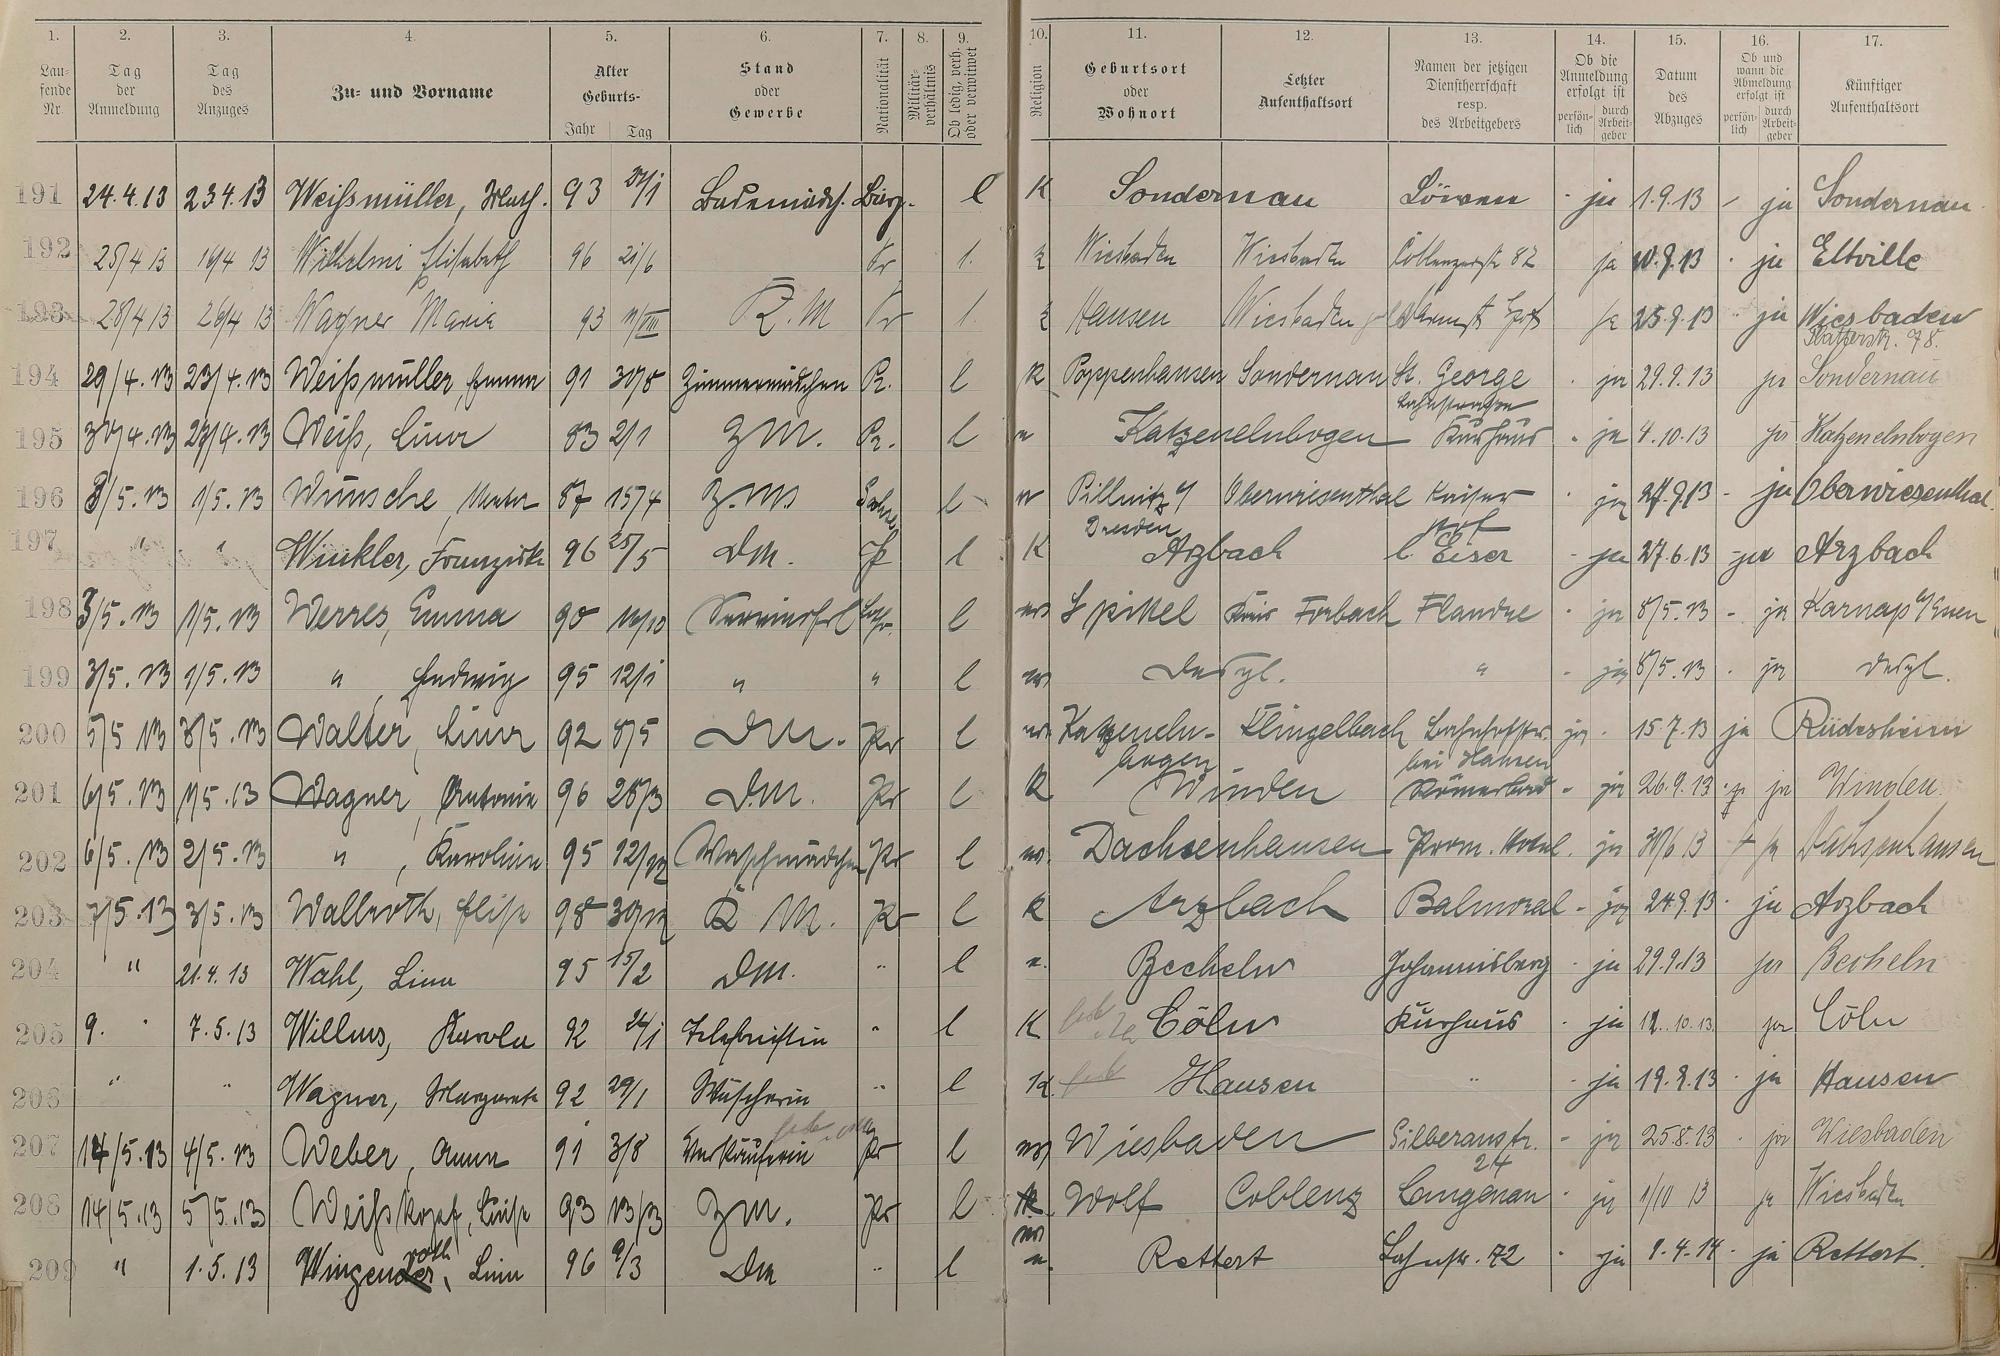 1. 2. 3. 4. 5. 6. 7. 8. 9. 10. 11. 12. 13. 14. 15. 16. 17.
Laufende Nr. Tag der Anmeldung Tag des Anzuges Zu- und Vorname Alter Geburts- Jahr Tag Stand oder Gewerbe Nationalität Militärverhältnis Ob ledig, verh. oder verwitwet Religion Geburtsort oder Wohnort Letzter Aufenthaltsort Namen der jetzigen Dienstherrschaft resp. des Arbeitgebers Ob die Anmeldung erfolgt ist persönlich durch Arbeitgeber Datum des Abzuges Ob und wann die Abmeldung erfolgt ist persönlich durch Arbeitgeber Künftiger Aufenthaltsort
191 24.4.13 23.4.13 Weißmüller, Math. 93 Bademädch. l K Sondernau Löwen - ja 1.9.13 - ja Sondernau
192 25/4 13 16/4 13 Wilhelmi Elisabeth 96 21/6 Pr l. Wiesbaden Wiesbaden Coblenzerstr 82 ja 10.9.13 - ja Eltville
193 28/4 13 26/4 13 Wagner Maria 93 K.M Pr l. Hausen Wiesbaden ja 25.9.13 - ja Wiesbaden
Platterstr. 78.
194 29/4.13 23/4.13 Weißmüller, Emma 91 30/8 Zimmermädchen Pr. l K Poppenhausen Sondernau St. George - ja 29.9.13 ja Sondernau
195 30/4.13 29/4.13 Weiß, Lina 83 2/1 ZM. Pr. l Katzenelnbogen Lahnstraße Kurhaus - ja 4.10.13 ja Katzenelnbogen
196 3/5.13 1/5.13 Wünsche, 87 15/4 ZM. l Pillnitz a/ Dresden Oberwiesenthal Kaiser Hof - ja 27.9.13 - ja Oberwiesenthal.
197 " " Winkler, Franziska 96 25/5 DM. l K Arzbach l Eiser - ja 27.6.13 - ja Arzbach
198 3/5.13 1/5.13 Werres, Emma 90 Servierfrl l Spittel Kreis Forbach Flandre - ja 8/5.13 - ja Karnap a/Essen
199 3/5.13 1/5.13 " , Hedwig 95 12/1 " " l Desgl. " - ja 8/5.13 - ja desgl.
200 5/5 13 3/5.13 Walter, Lina 92 8/5 DM. Pr l Katzeneln- bogen Klingelbach Bahnhofstr. bei Hansen ja - 15.7.13 ja Rüdesheim
201 6/5.13 1/5.13 Wagner, Antonie 96 28/3 D.M. Pr l K Winden Römerbad - ja 26.9.13 ja Winden.
202 6/5.13 2/5.13 " , Karoline 95 12/12 Waschmädchen Pr l Dachsenhausen Prom. Hotel. ja 30/6 13 ja Dachsenhausen
203 7/5.13 3/5.13 Wallroth, Elise 98 30/12 K M. Pr l K Arzbach Balmoral - ja 24.9.13 - ja Arzbach
204 " 21.4.13 Wahl, Lina 95 15/2 DM. " l e. Becheln Johannisberg - ja 29.9.13 ja Becheln
205 9. " 7.5.13 Willms, Karola 92 24/1 Telefonistin " l K Cöln Kurhaus - ja 12.10.13 ja Cöln
206 " " Wagner, Margarete 92 29/1 Wäscherin " l K. Hausen " - ja 19.9.13 - ja Hausen
207 14/5.13 4/5.13 Weber, Anna 91 3/8 Verkäuferin Pr l Wiesbaden Silberaustr. 24 - ja 25.8.13 - ja Wiesbaden
208 14/5.13 5/5.13 Weißkopf, Luise 93 13/3 ZM. Pr l Wolf Coblenz Langenau - ja 1/10 13 ja Wiesbaden
209 " 1.5.13 Wingenroth, Lina 96 9/3 DM " l e. Rettert Lahnstr. 72 - ja 1.4.14 - ja Rettert.